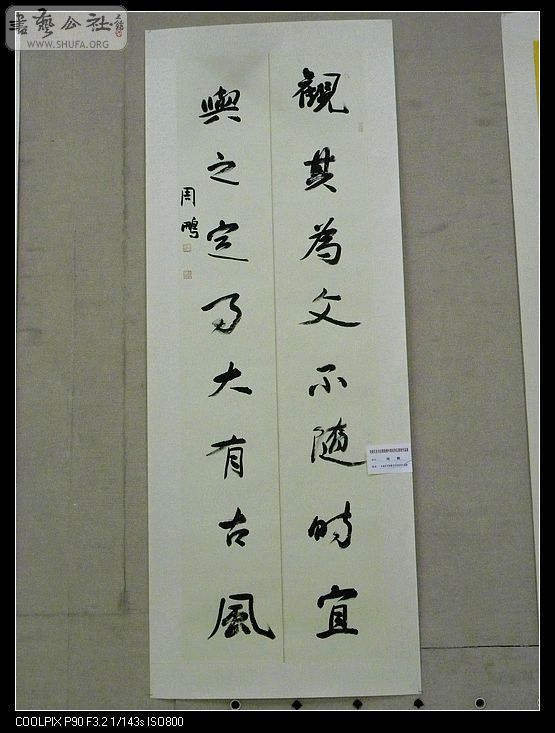 書藝公社
WWW.SHUFA.ORG
觀其為文不隨時宜
與之定事大有古風
周鵬
COOLPIX P90 F3.2 1/143s ISO800